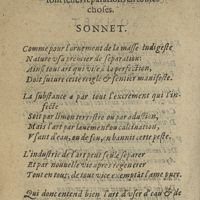 choses.
SONNET.
Comme pour l'ornement de la masse indigeste
Nature usa premier de separation:
Ainsi tout art qui vise à la perfection,
Doit suivre ceste reigle & sentier manifeste.
La substance a par tout l'excrement qui l'in-
fecte
Soit par limon terrestre ou par adustion,
Mais l'art par lavement ou calcination,
Usant d'eau, ou de feu, en bannit cette peste.
L'industrie de l'art peut seule separer
Et par nouvelle vie apres regenerer
Tout en tous, de tout vice exemptāt l'ame pure.
Qui donc entend bien l'art d'user d'eau & de